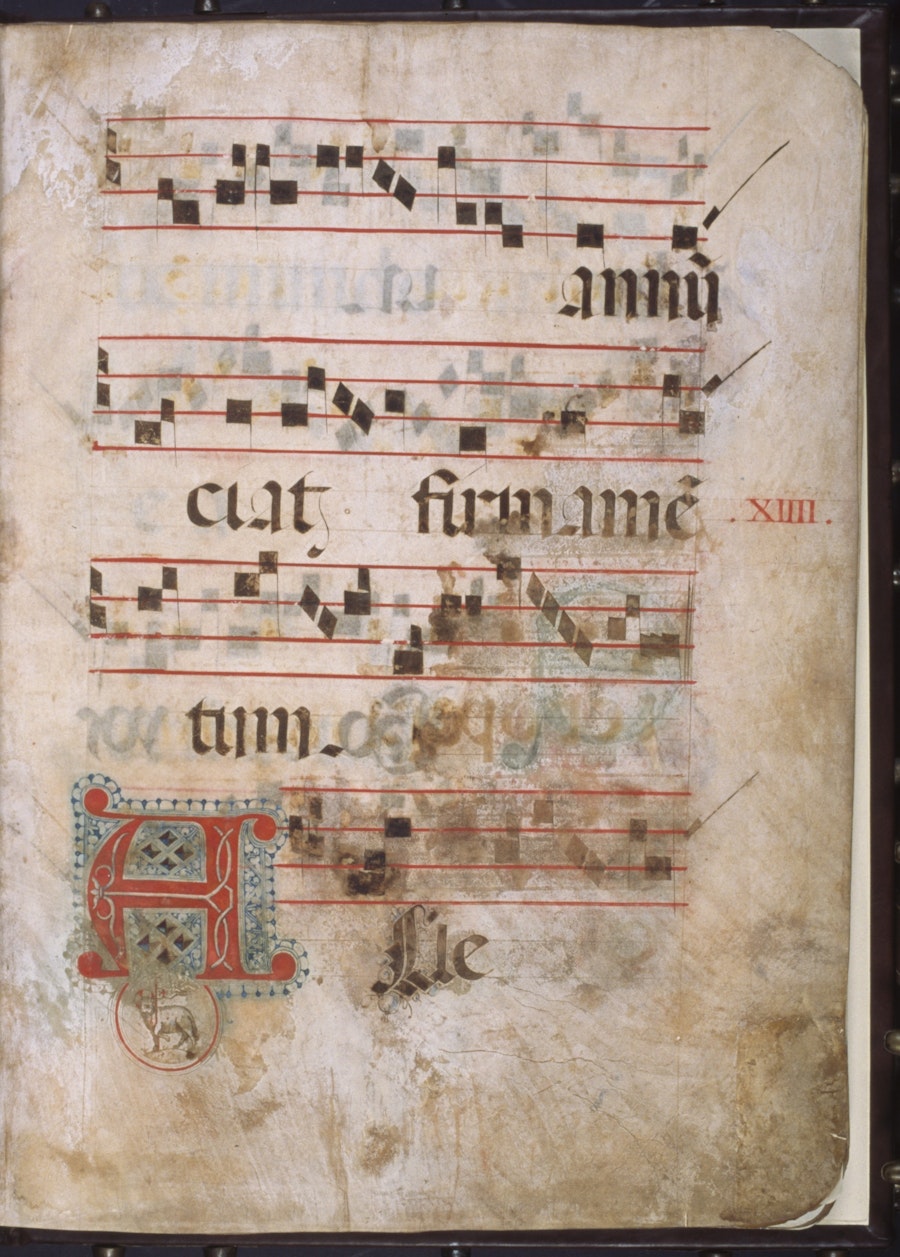 annū
ciat firmamē
.XIIII.
tum
Alle